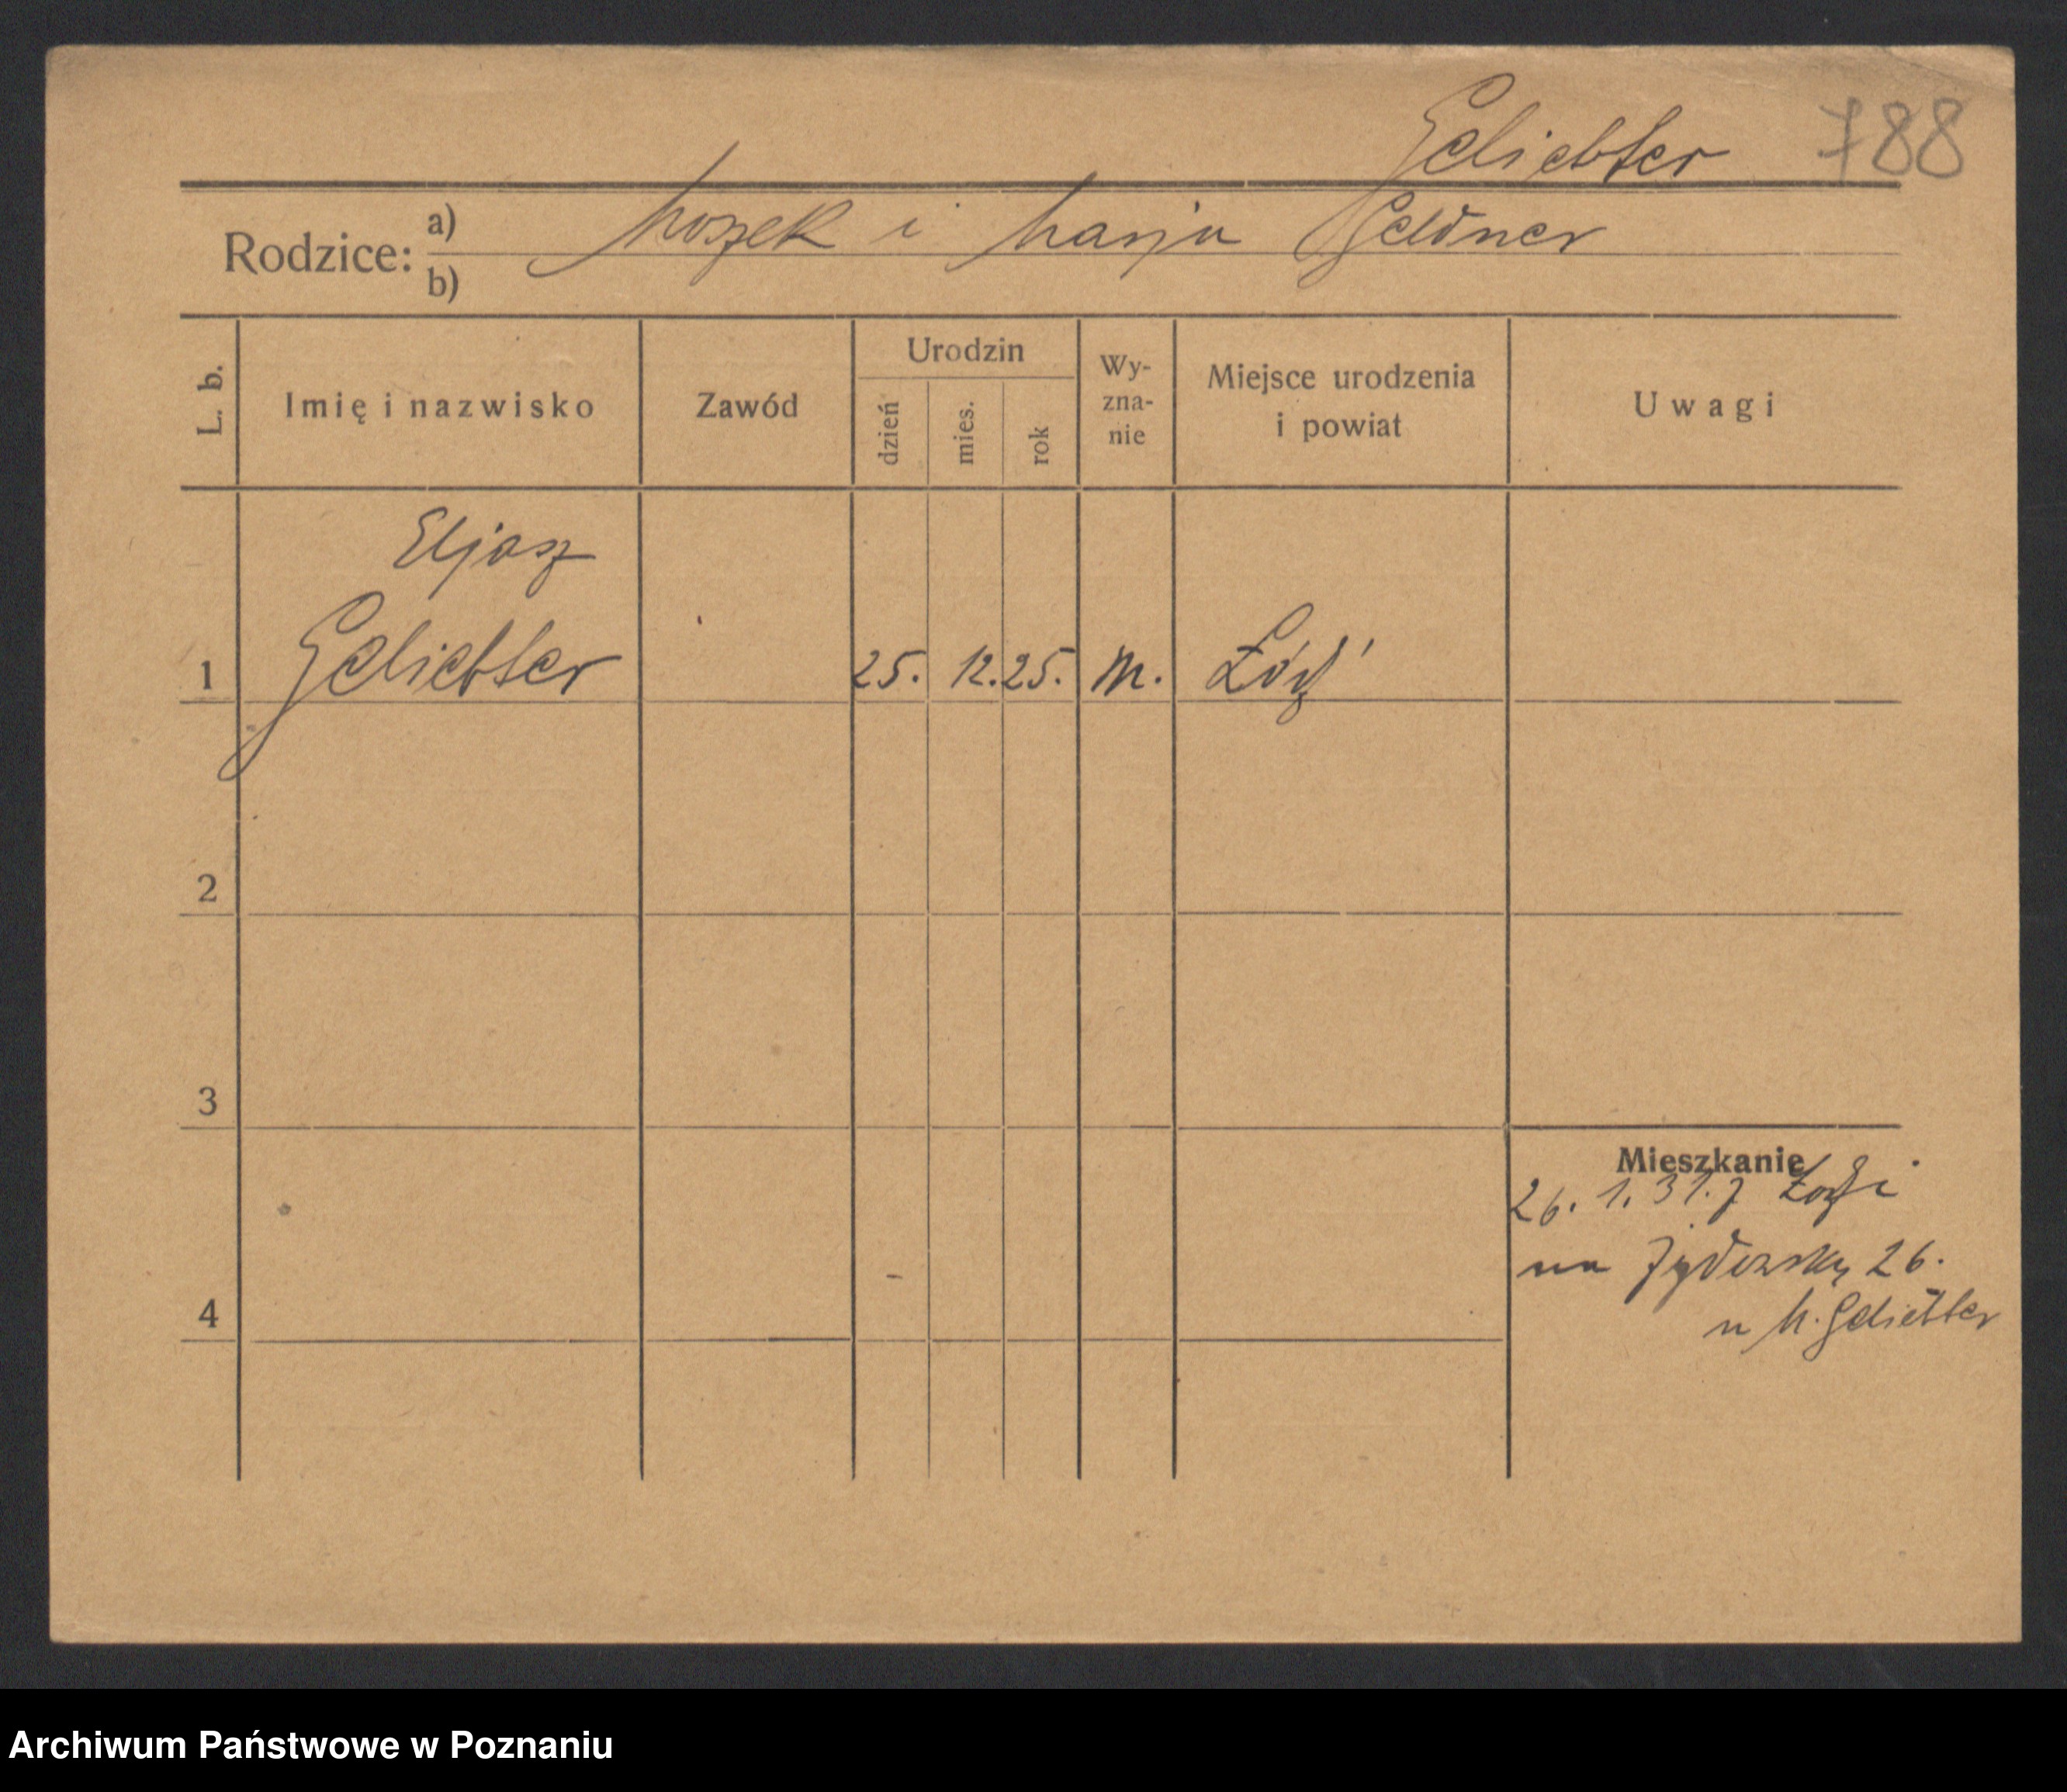 Geliebter 788
Rodzice: a) Moszek i Marja Geldner
b)
L. b. Imię i nazwisko Zawód Urodzin dzień mies. rok Wy-zna-nie Miejsce urodzenia i powiat Uwagi
Eljasz
1 Geliebter 25. 12. 25. m. Łódź
2
3
Mieszkanie
26. 1. 31. z Łodzi
na Żydowską 26.
4
u M. Geliebter
Archiwum Państwowe w Poznaniu